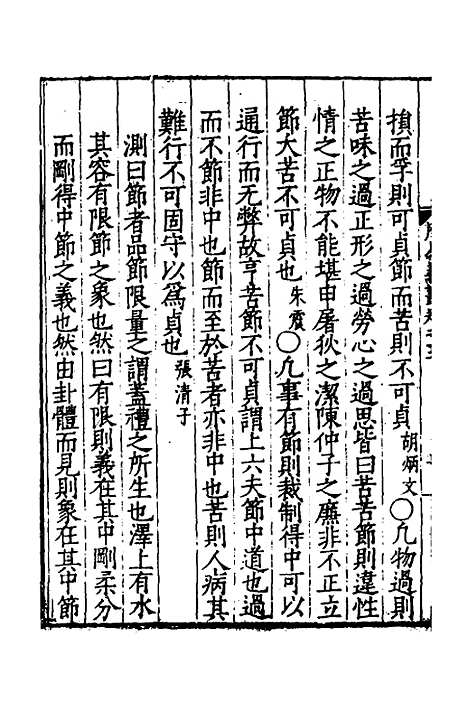 損而孚則可貞節而苦則不可貞胡炳文○凡物過則
苦味之過正形之過勞心之過思皆曰苦苦節則違性
情之正物不能堪申屠狄之潔陳仲子之廉非不正立
節大苦不可貞也朱震○凡事有節則裁制得中可以
通行而无弊故亨苦節不可貞謂上六夫節中道也過
而不節非中也節而至於苦者亦非中也苦則人病其
難行不可固守以為貞也張清子
測曰節者品節限量之謂蓋禮之所生也澤上有水
其容有限節之象也然曰有限則義在其中剛柔分
而剛得中節之義也然由卦體而見則象在其中節